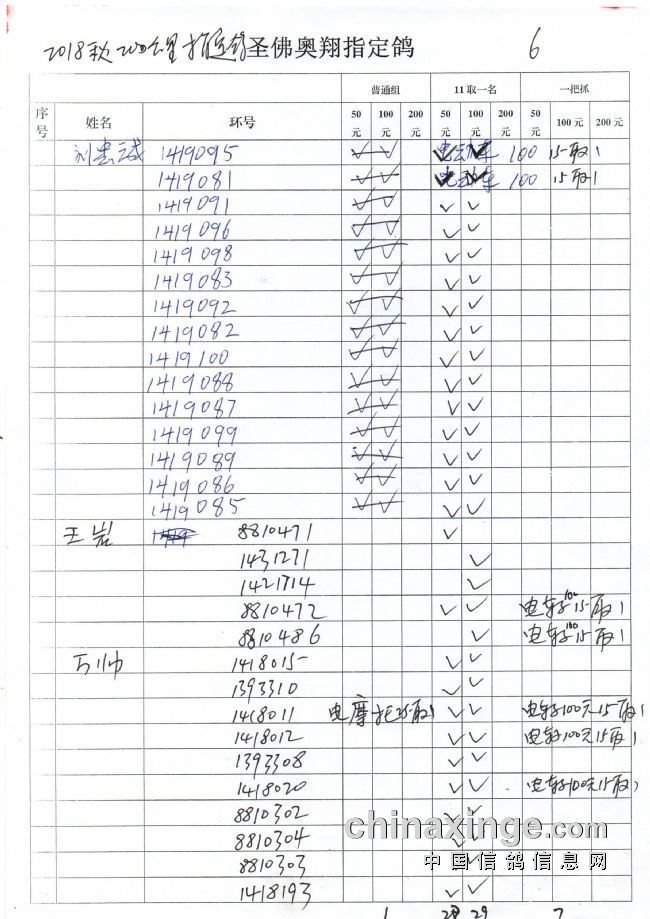 2018秋200公里指定鸽圣佛奥翔指定鸽 6
普通组 11取一名 一把抓
序号 姓名 环号 50元 100元 200元 50元 100元 200元 50元 100元 200元
1419095 ✓ ✓ 电动车 100 15取1
1419081 ✓ ✓ 电动车 100 15取1
1419091 ✓ ✓ ✓ ✓
1419096 ✓ ✓ ✓ ✓
1419098 ✓ ✓ ✓ ✓
1419083 ✓ ✓ ✓ ✓
1419092 ✓ ✓ ✓ ✓
1419082 ✓ ✓ ✓ ✓
1419100 ✓ ✓ ✓ ✓
1419088 ✓ ✓ ✓ ✓
1419087 ✓ ✓ ✓ ✓
1419099 ✓ ✓ ✓ ✓
1419089 ✓ ✓ ✓ ✓
1419086 ✓ ✓ ✓ ✓
1419085 ✓ ✓ ✓ ✓
王岩 8810471 ✓
1431271 ✓
1421714 ✓
8810472 ✓ ✓ 100 15取1
8810486 ✓ 100 15取1
万帅 1418015 ✓ ✓
1393310 ✓
1418011 电摩托25取1 ✓ ✓ 100元15取1
1418012 ✓ ✓ 100元15取1
1393308 ✓ ✓
1418020 ✓ ✓ 100元15取1
8810302 ✓ ✓
8810304 ✓ ✓
8810303 ✓ ✓
1418193 ✓ ✓
1 28 29 7
chinaxinge.com
中国信鸽信息网